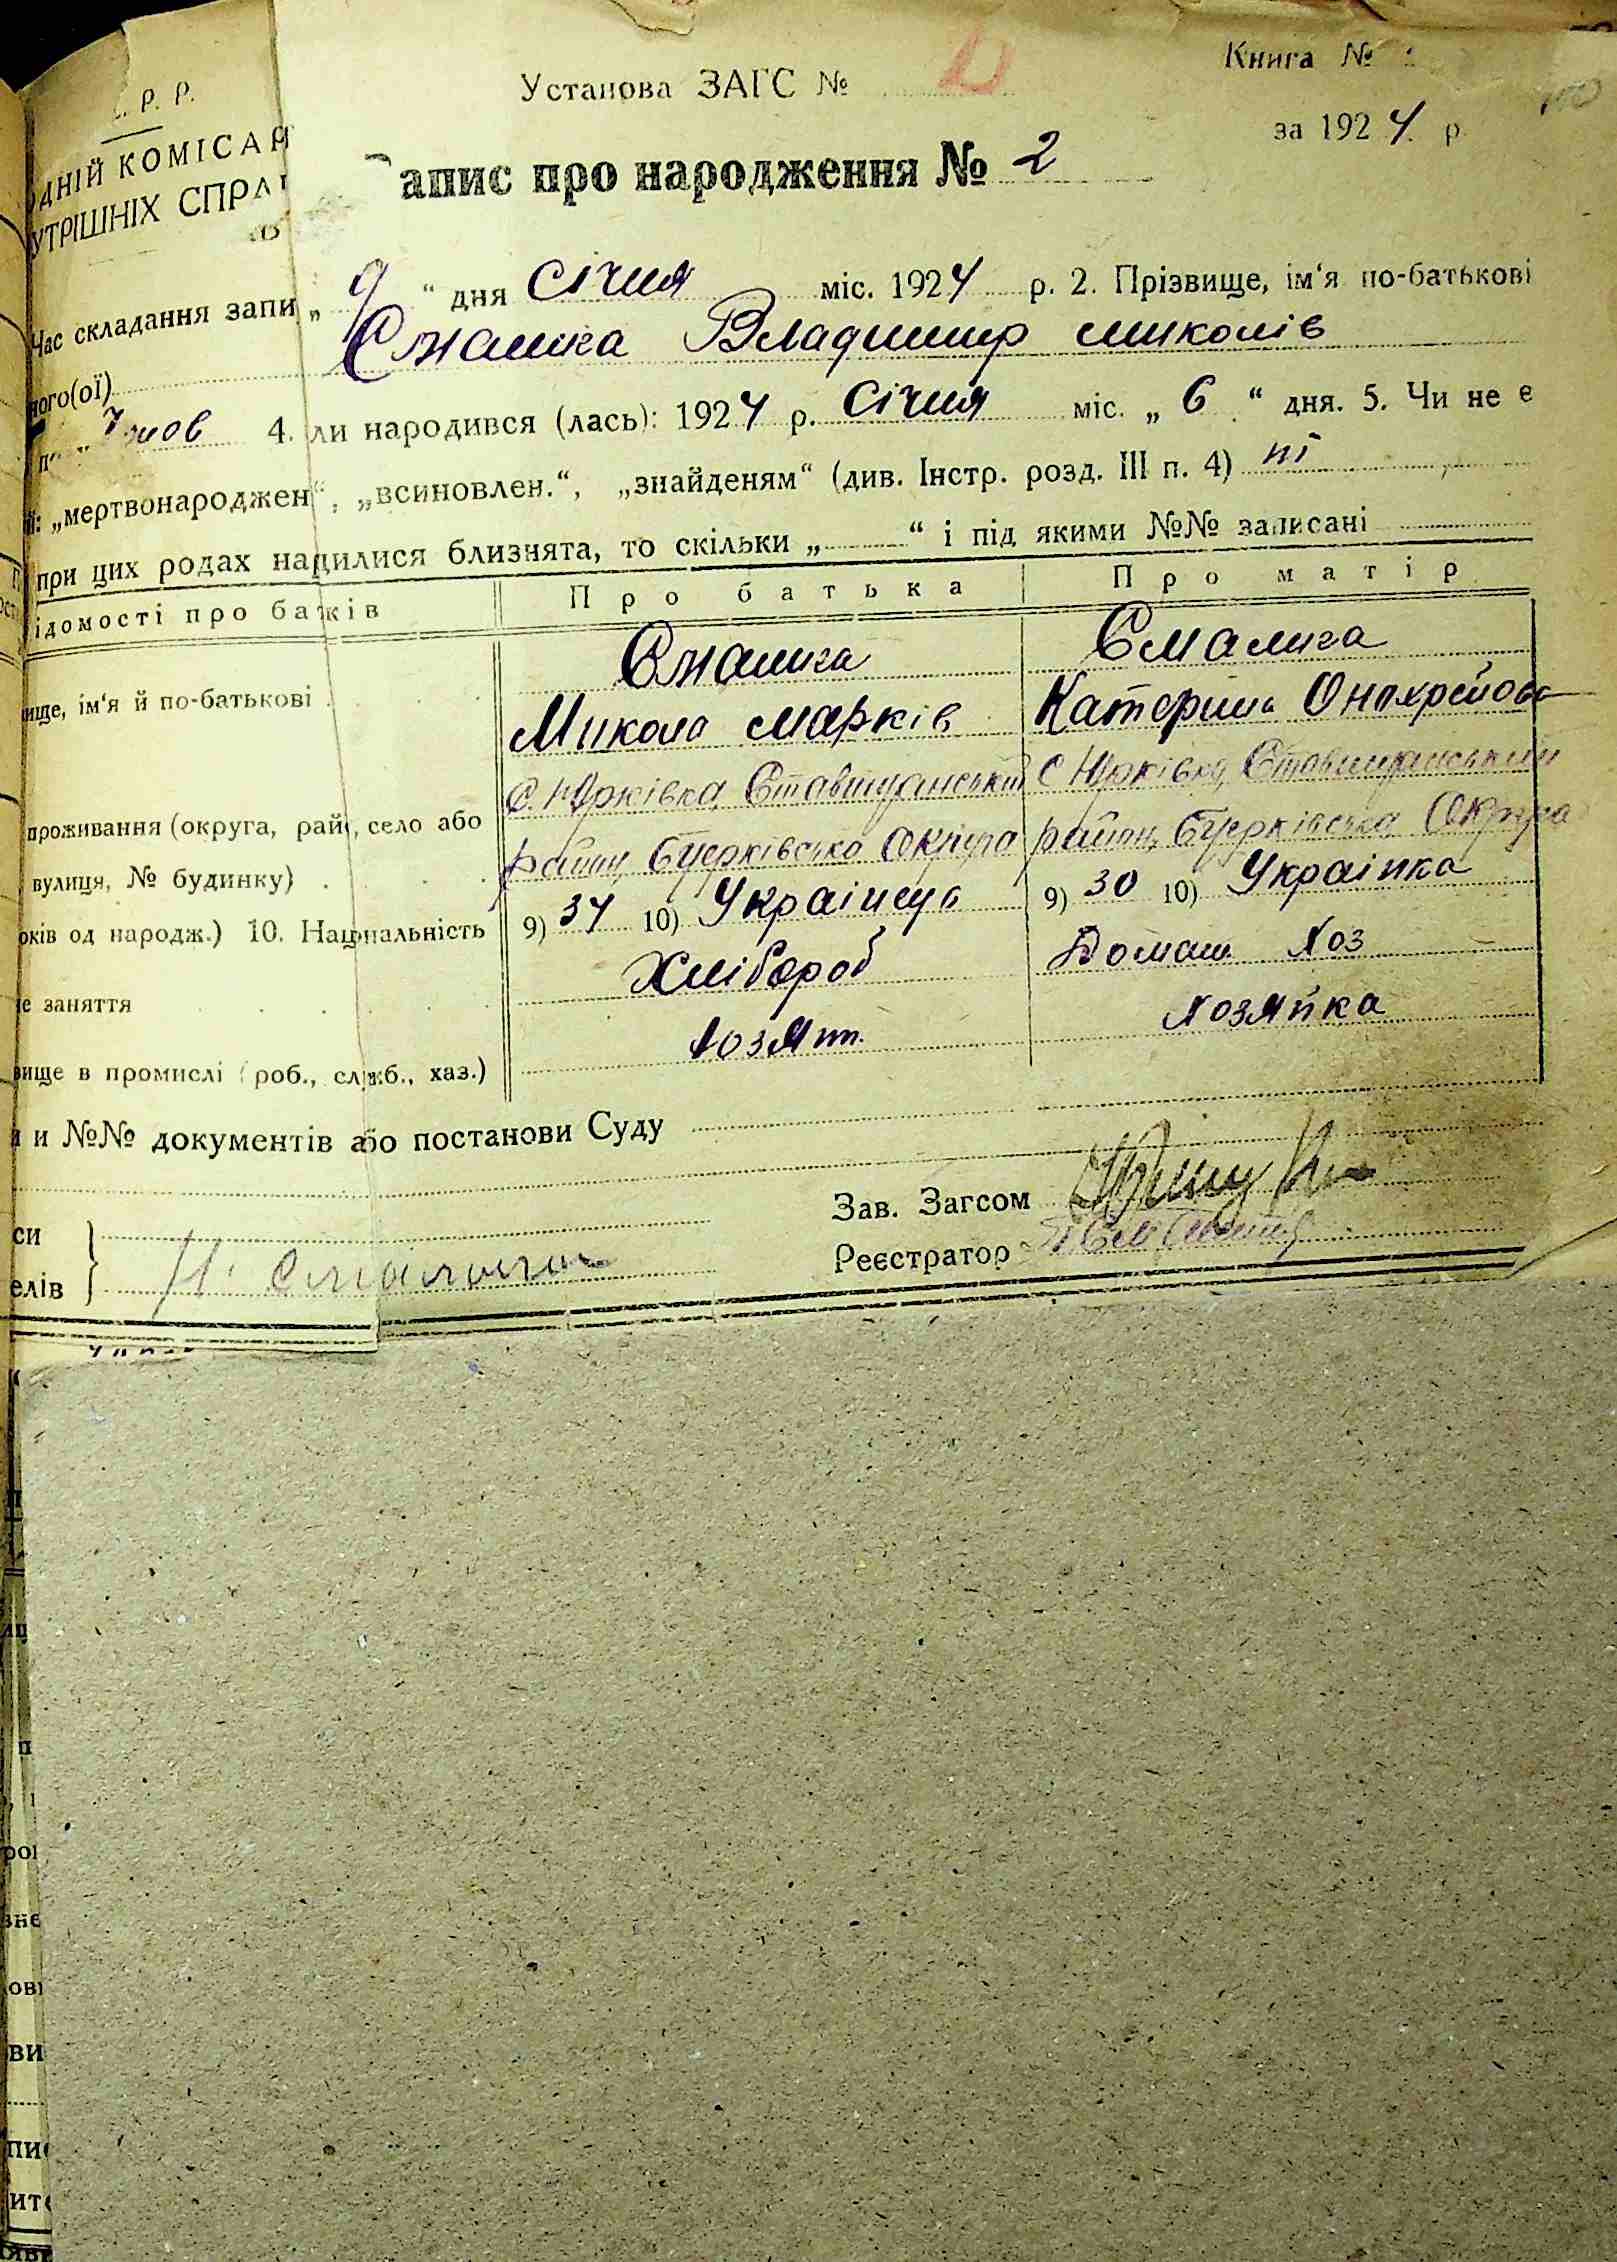 Р. Р.
ДНІЙ КОМІСАР
УТРІШНІХ СПРА
Установа ЗАГС №
Книга №
за 1924 р
апис про народження № 2
Час складання запи „9“ дня січня міс. 1924 р. 2. Прізвище, ім‘я по-батькові
ного(ої) Смалига Владимир миколів
4. ли народився (лась): 1924 р. січня міс. „6“ дня. 5. Чи не є
„мертвонароджен“, „всиновлен.“, „знайденям“ (див. Інстр. розд. III п. 4) ні
при цих родах на дилися близнята, то скільки „ “ і під якими №№ записані
ідомості про ба ків
Про батька
Про матір
ище, ім‘я й по-батькові
Смалига
Микола марків
Смалига
Катерина
проживання (округа, рай , село або
вулиця, № будинку)
с. Юрківка Ставищанський
район, Бцерківська Округа
с Юрківка, Ставищанський
район, Бцерківська Округа
оків од народж.) 10. Нац нальність
9) 34 10) Українец
9) 30 10) Українка
е заняття
Хлібороб
Домаш хоз
вище в промислі (роб., служб., хаз.)
хозяїн
хозяйка
и №№ документів або постанови Суду
Зав. Загсом
Реєстратор
си
елів
Н. Смалыга